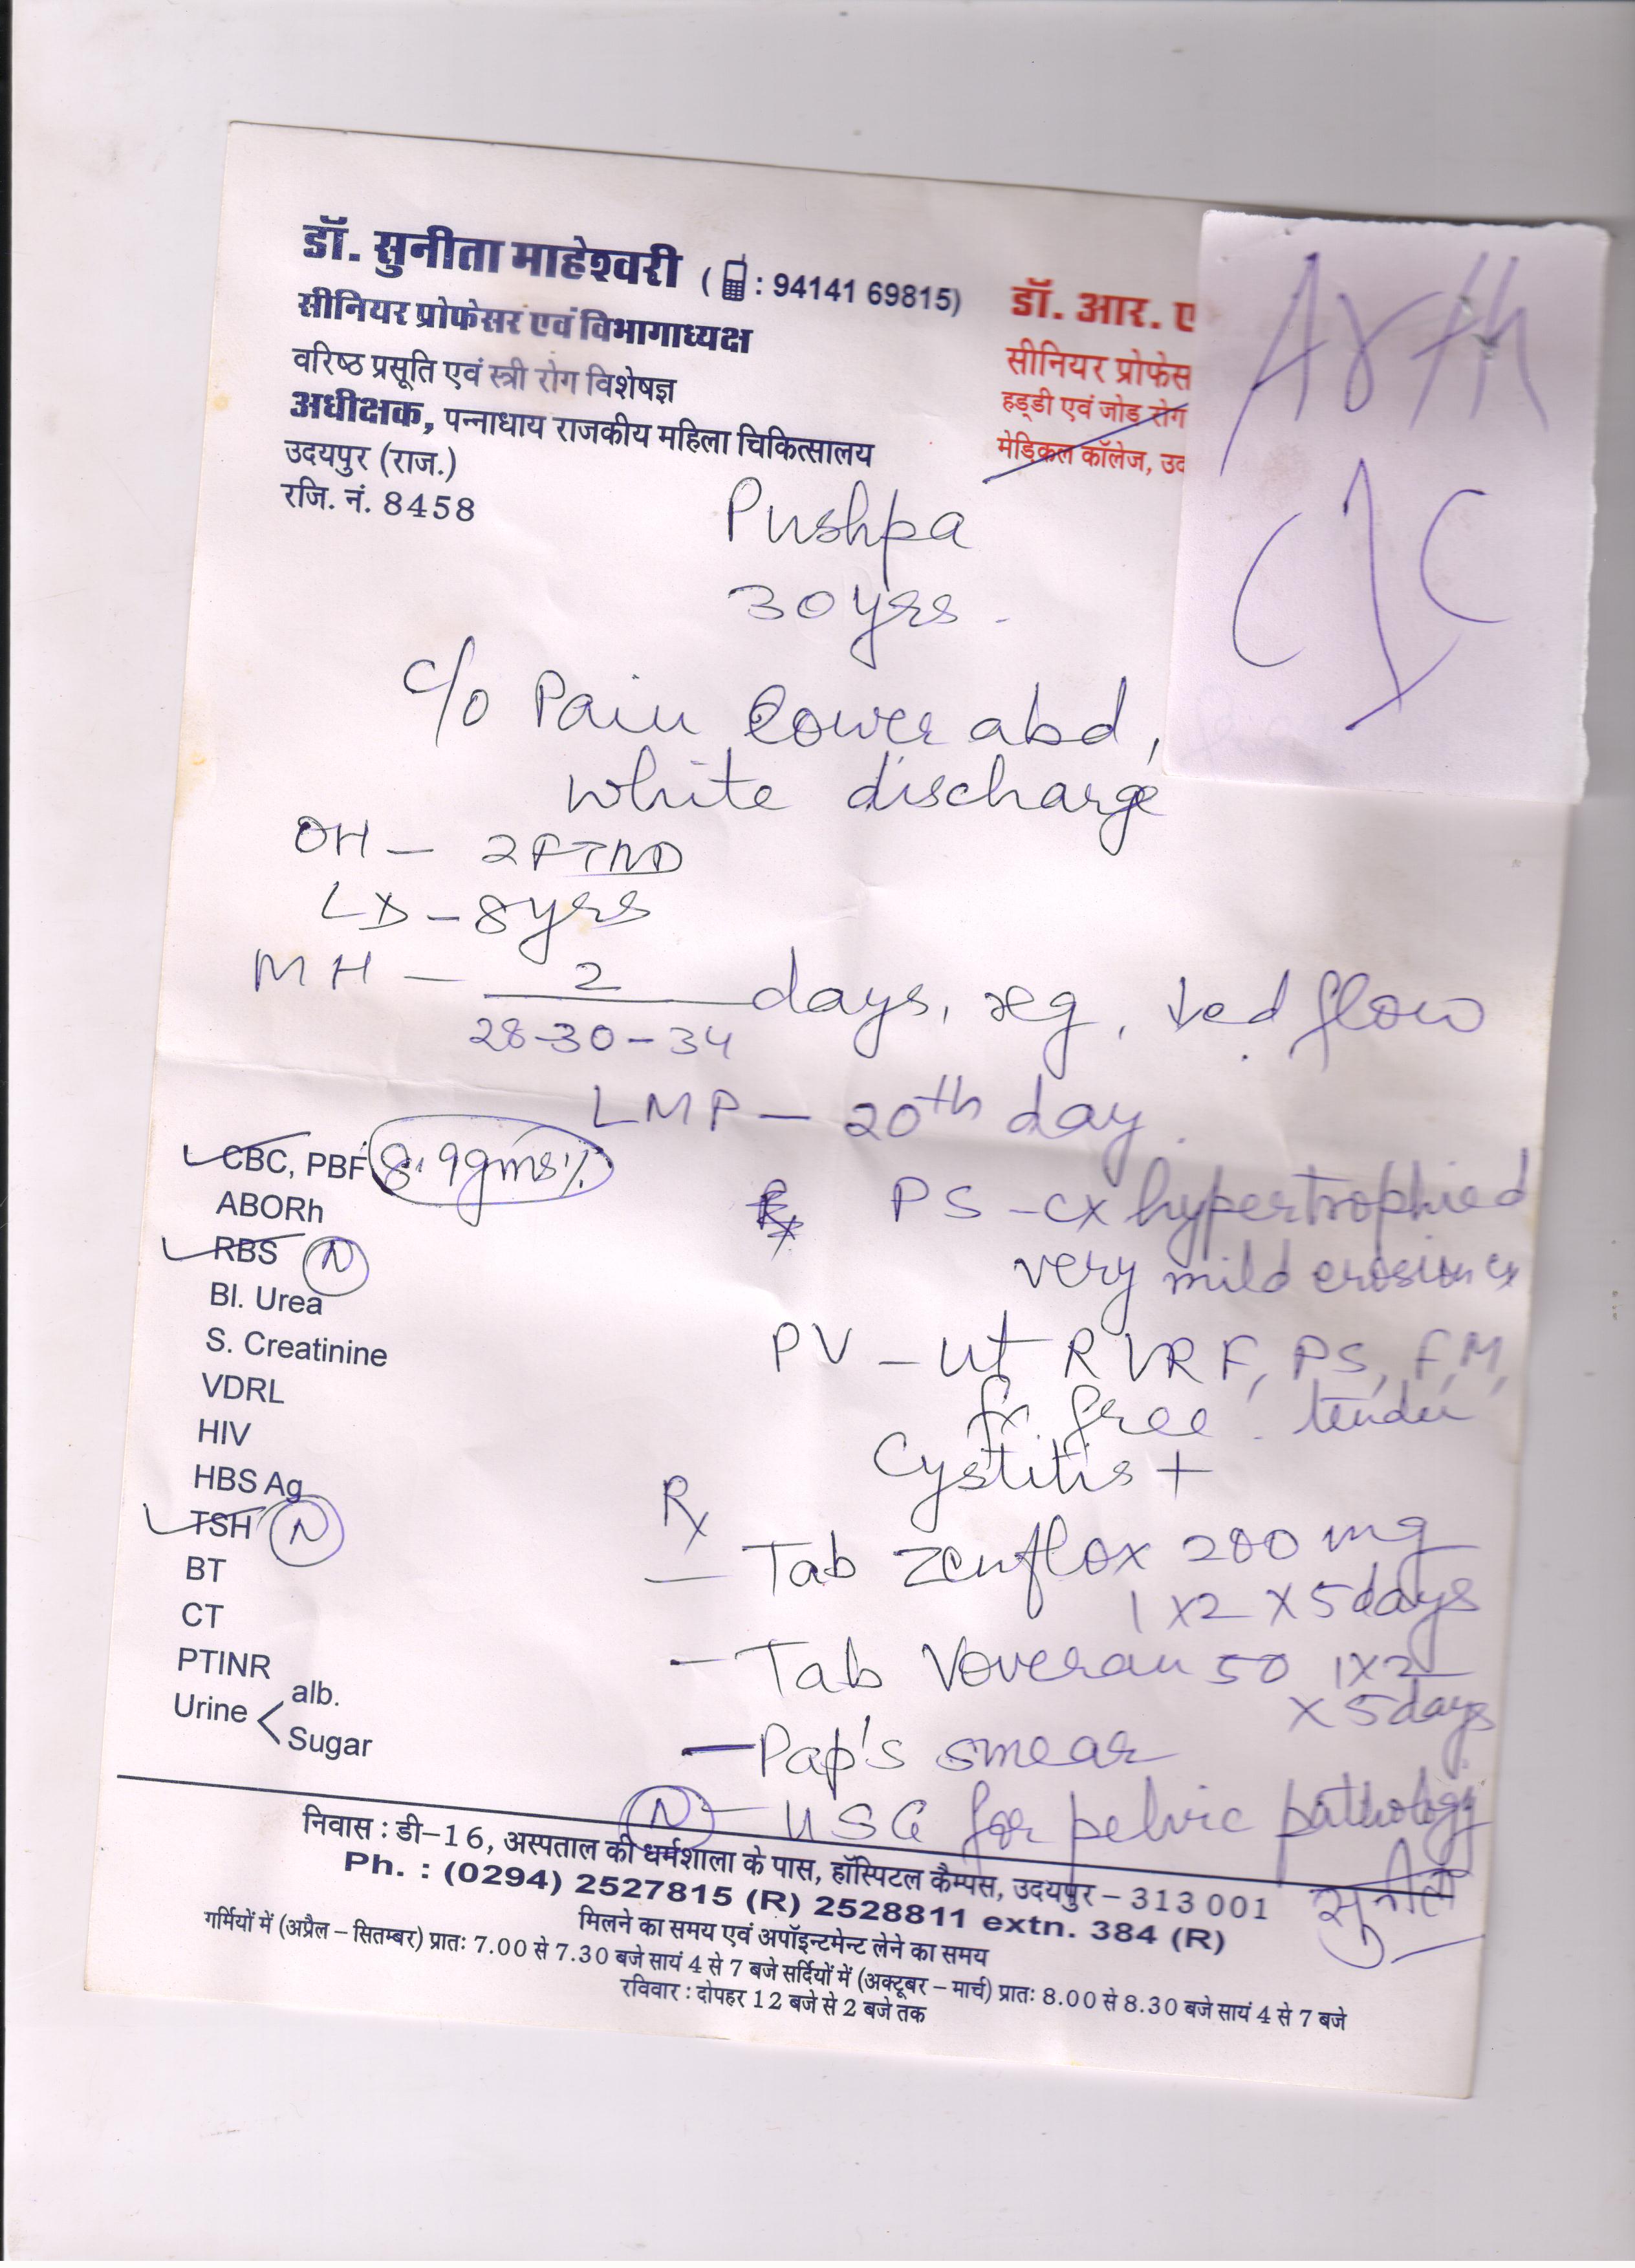 डॉ. सुनीता माहेश्वरी ( : 94141 69815)
सीनियर प्रोफेसर एवं विभागाध्यक्ष
वरिष्ठ प्रसूति एवं स्त्री रोग विशेषज्ञ
अधीक्षक, पन्नाधाय राजकीय महिला चिकित्सालय
उदयपुर (राज.)
रजि. नं. 8458
डॉ. आर. ए
सीनियर प्रोफेस
हड्डी एवं जोड़ रोग
मेडिकल कॉलेज, उद
Arth
Pushpa
30 yrs.
c/o Pain lower abd,
white discharge
OH - 2FTND
LD - 8yrs
MH - 2 days, reg, ↓ed flow
28-30-34
LMP - 20th day.
CBC, PBF 8.9gms%
ABORh
RBS N
Bl. Urea
S. Creatinine
VDRL
HIV
HBS Ag
TSH N
BT
CT
PTINR
Urine < alb.
Sugar
PS - cx hypertrophied
very mild erosion cx
PV - ut RVRF, PS, F, M,
fx free. tender
Cystitis +
Rx
- Tab Zenflox 200 mg
1 x 2 x 5 days
- Tab Voveran 50 1x2
x 5 days
- Pap's smear
N - USG for pelvic pathology
सुनीता
निवास : डी-16, अस्पताल की धर्मशाला के पास, हॉस्पिटल कैम्पस, उदयपुर - 313 001
Ph. : (0294) 2527815 (R) 2528811 extn. 384 (R)
मिलने का समय एवं अपॉइन्टमेन्ट लेने का समय
गर्मियों में (अप्रैल - सितम्बर) प्रातः 7.00 से 7.30 बजे सायं 4 से 7 बजे सर्दियों में (अक्टूबर - मार्च) प्रातः 8.00 से 8.30 बजे सायं 4 से 7 बजे
रविवार : दोपहर 12 बजे से 2 बजे तक